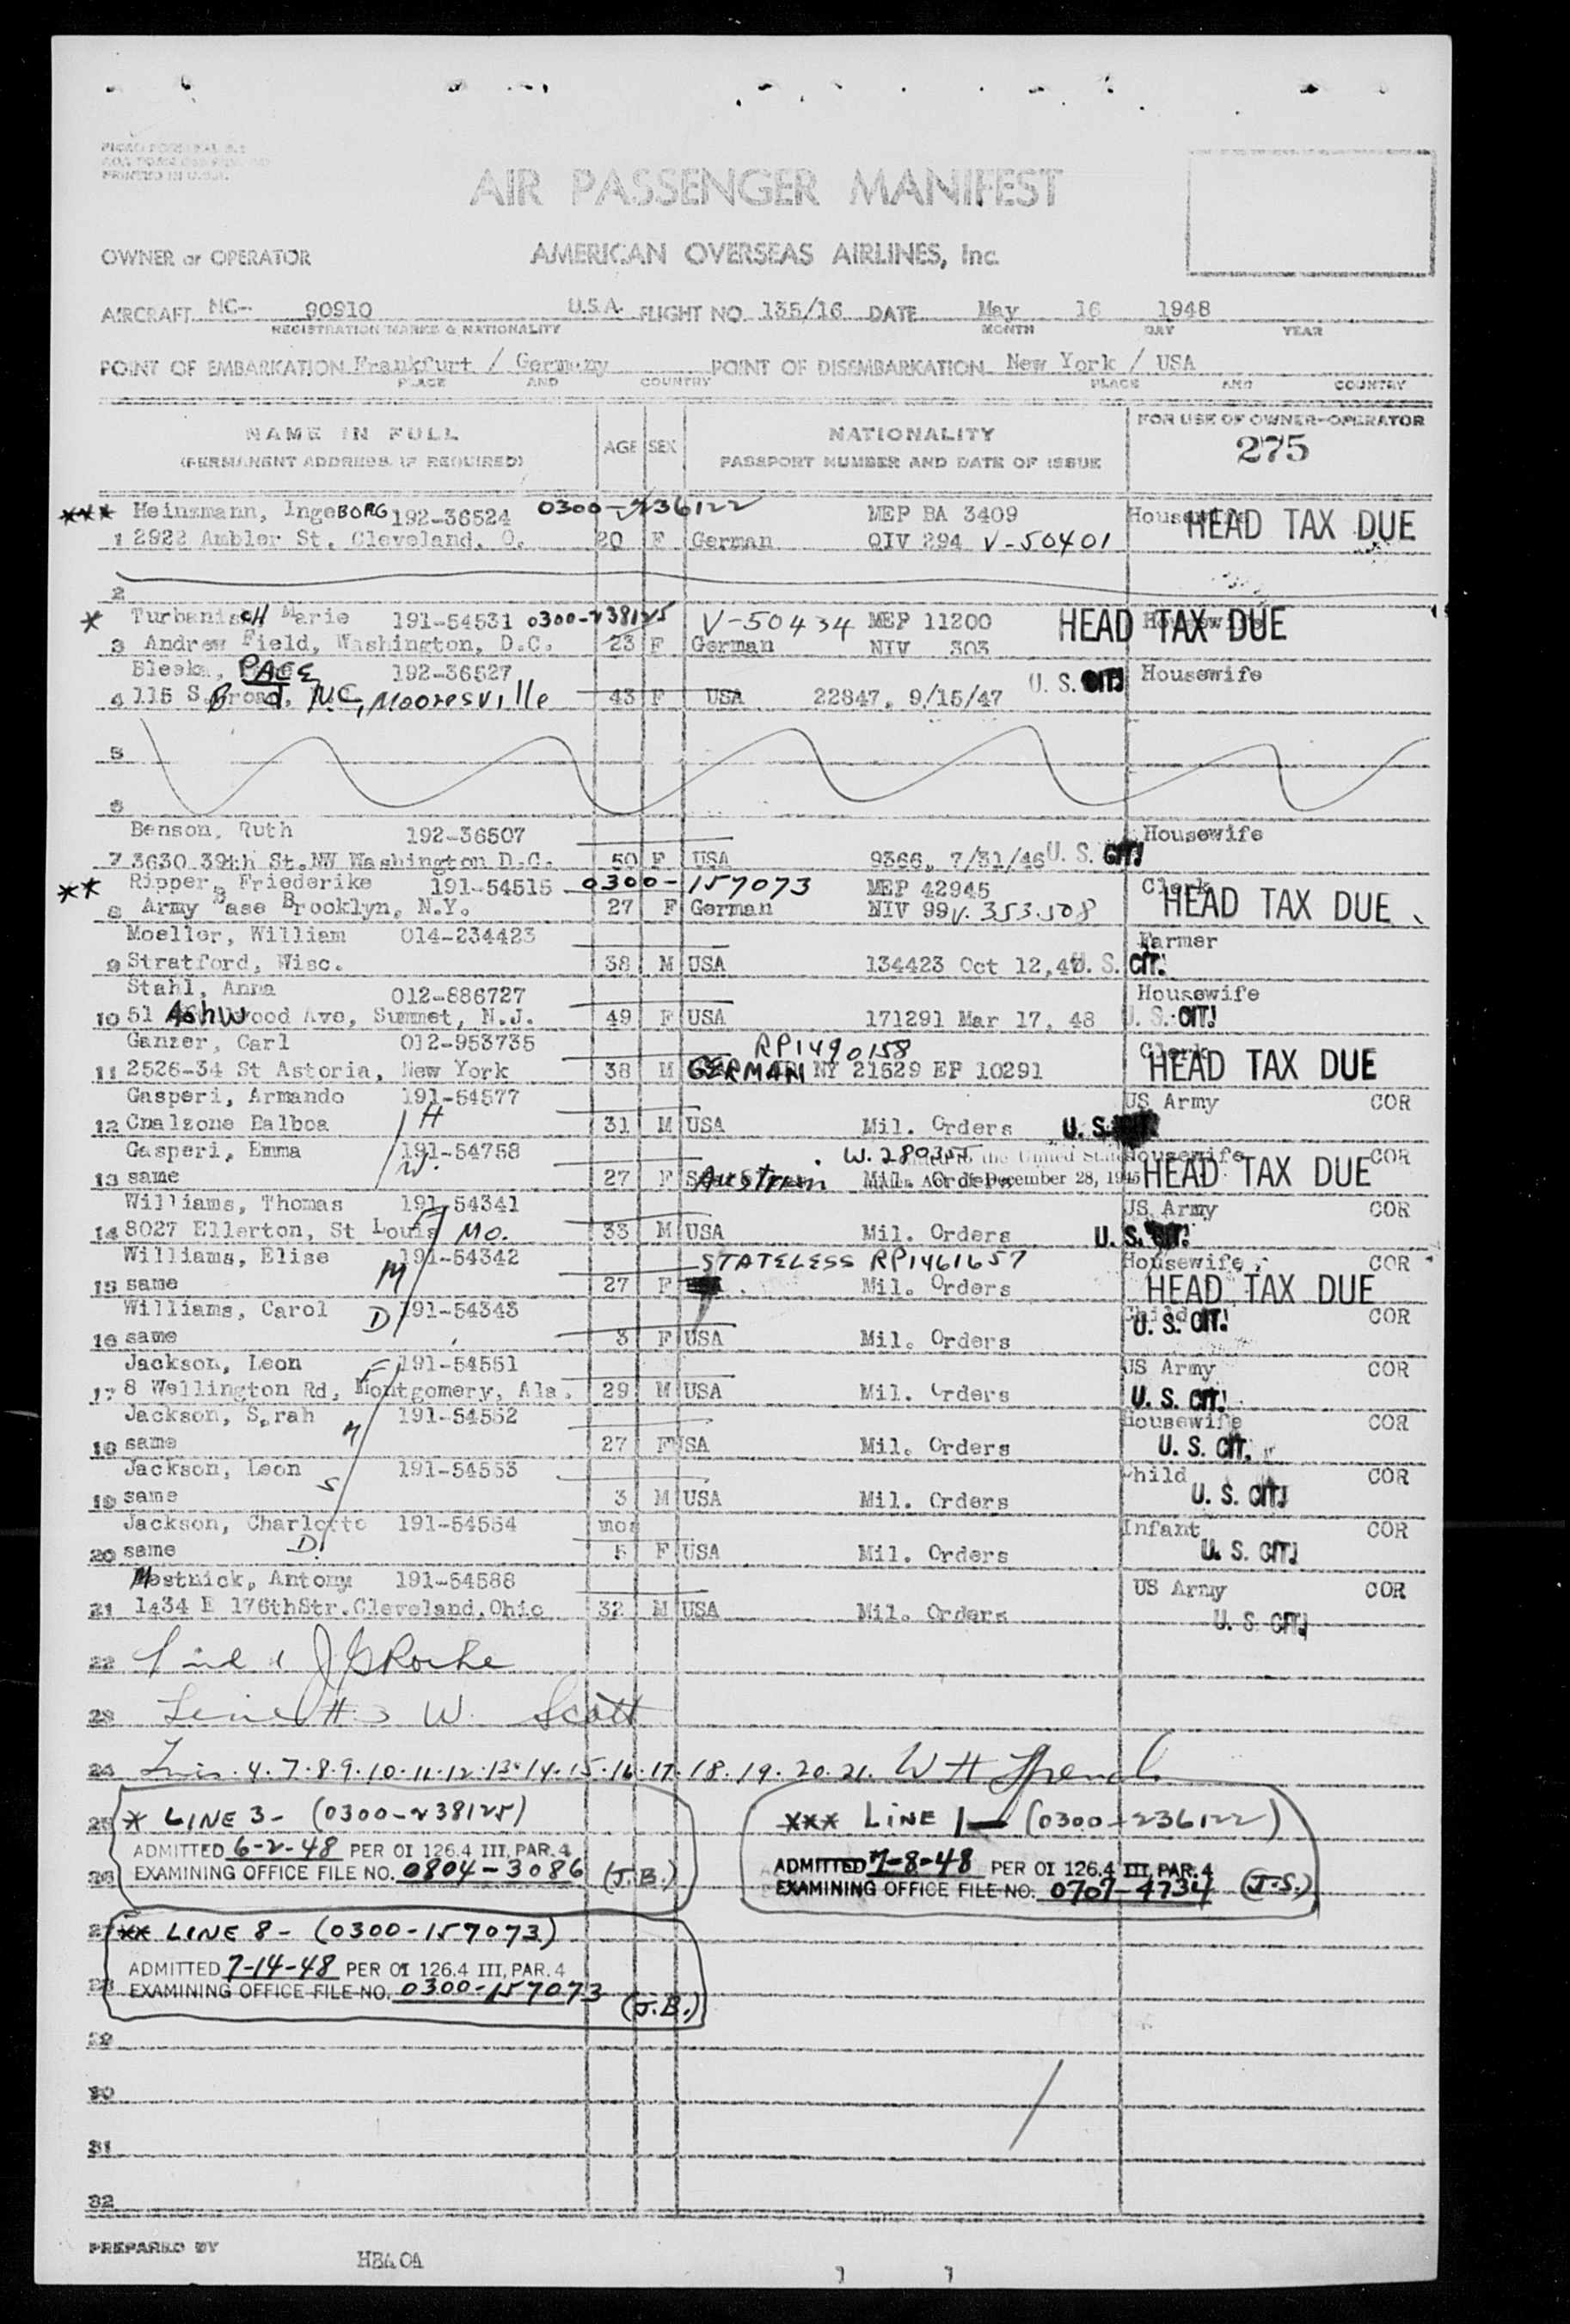 AIR PASSENGER MANIFEST
OWNER or OPERATOR AMERICAN OVERSEAS AIRLINES, Inc.
AIRCRAFT NC- 90910 U.S.A. FLIGHT NO. 135/16 DATE May 16 1948
REGISTRATION MARKS & NATIONALITY MONTH DAY YEAR
POINT OF EMBARKATION Frankfurt / Germany POINT OF DISEMBARKATION New York / USA
PLACE AND COUNTRY PLACE AND COUNTRY
NAME IN FULL AGE SEX NATIONALITY FOR USE OF OWNER-OPERATOR
(PERMANENT ADDRESS IF REQUIRED) PASSPORT NUMBER AND DATE OF ISSUE 275
*** Heinzmann, IngeBORG 192-36524 0300-236122 MEP BA 3409 Housewife HEAD TAX DUE
1 2922 Ambler St, Cleveland, O. 20 F German QIV 294 V-50401
2
* Turbanisch Marie 191-54531 0300-238125 V-50434 MEP 11200 HEAD TAX DUE Housewife
3 Andrew Field, Washington, D.C. 23 F German NIV 303
192-36527 U. S. CIT! Housewife
4 115 S. Broad, N.C, Mooresville 43 F USA 22847, 9/15/47
5
6
Benson, Ruth 192-36507 Housewife
7 3630 39th St.NW Washington D.C. 50 F USA 9366, 7/31/46 U. S. CIT!
** Ripper, Friederike 191-54515 0300-157073 MEP 42945 Clerk HEAD TAX DUE
8 Army Base Brooklyn, N.Y. 27 F German NIV 99 V. 353508
Moeller, William 014-234423 Farmer
9 Stratford, Wisc. 38 M USA 134423 Oct 12,47 U. S. CIT!
Stahl, Anna 012-886727 Housewife
10 51 Ashwood Ave, Summet, N.J. 49 F USA 171291 Mar 17, 48 U. S. CIT!
Ganzer, Carl 012-953735 RP1490158 Clerk HEAD TAX DUE
11 2526-34 St Astoria, New York 38 M GERMAN NY 21529 EP 10291
Gasperi, Armando 191-54577 US Army COR
12 Cnalzone Balboa H 31 M USA Mil. Orders U. S.
Gasperi, Emma 191-54758 W. to the United States Housewife COR
13 same W. 27 F Austrian Mil. Orders December 28, 1945 HEAD TAX DUE
Williams, Thomas 191-54341 US Army COR
14 8027 Ellerton, St Louis Mo. F 33 M USA Mil. Orders U. S. CIT!
Williams, Elise 191-54342 STATELESS RP1461657 Housewife COR
15 same M 27 F Mil. Orders HEAD TAX DUE
Williams, Carol D 191-54343 Child COR
16 same 3 F USA Mil. Orders U. S. CIT!
Jackson, Leon F 191-54551 US Army COR
17 8 Wellington Rd, Montgomery, Ala. 29 M USA Mil. Orders U. S. CIT!
Jackson, Sarah M 191-54552 Housewife COR
18 same 27 F USA Mil. Orders U. S. CIT.
Jackson, Leon S 191-54553 Child COR
19 same 3 M USA Mil. Orders U. S. CIT!
Jackson, Charlotte 191-54554 mos Infant COR
20 same D. 5 F USA Mil. Orders U. S. CIT!
Mestnick, Antony 191-54588 US Army COR
21 1434 E 176thStr.Cleveland,Ohio 32 M USA Mil. Orders U. S. CIT!
22 Line 1 J G Roche
23 Line # 3 W. Scott
24 4.7.8.9.10.11.12.13.14.15.16.17.18.19.20.21. W H
25 * LINE 3- (0300-238125)
ADMITTED 6-2-48 PER OI 126.4 III, PAR. 4
26 EXAMINING OFFICE FILE NO. 0804-3086 (J.B.)
*** LINE 1- (0300-236122)
ADMITTED 7-8-48 PER OI 126.4 III, PAR. 4
EXAMINING OFFICE FILE NO. 0707-4734 (J.S.)
27 ** LINE 8- (0300-157073)
ADMITTED 7-14-48 PER OI 126.4 III, PAR. 4
28 EXAMINING OFFICE FILE NO. 0300-157073 (J.B.)
29
30
31
32
PREPARED BY